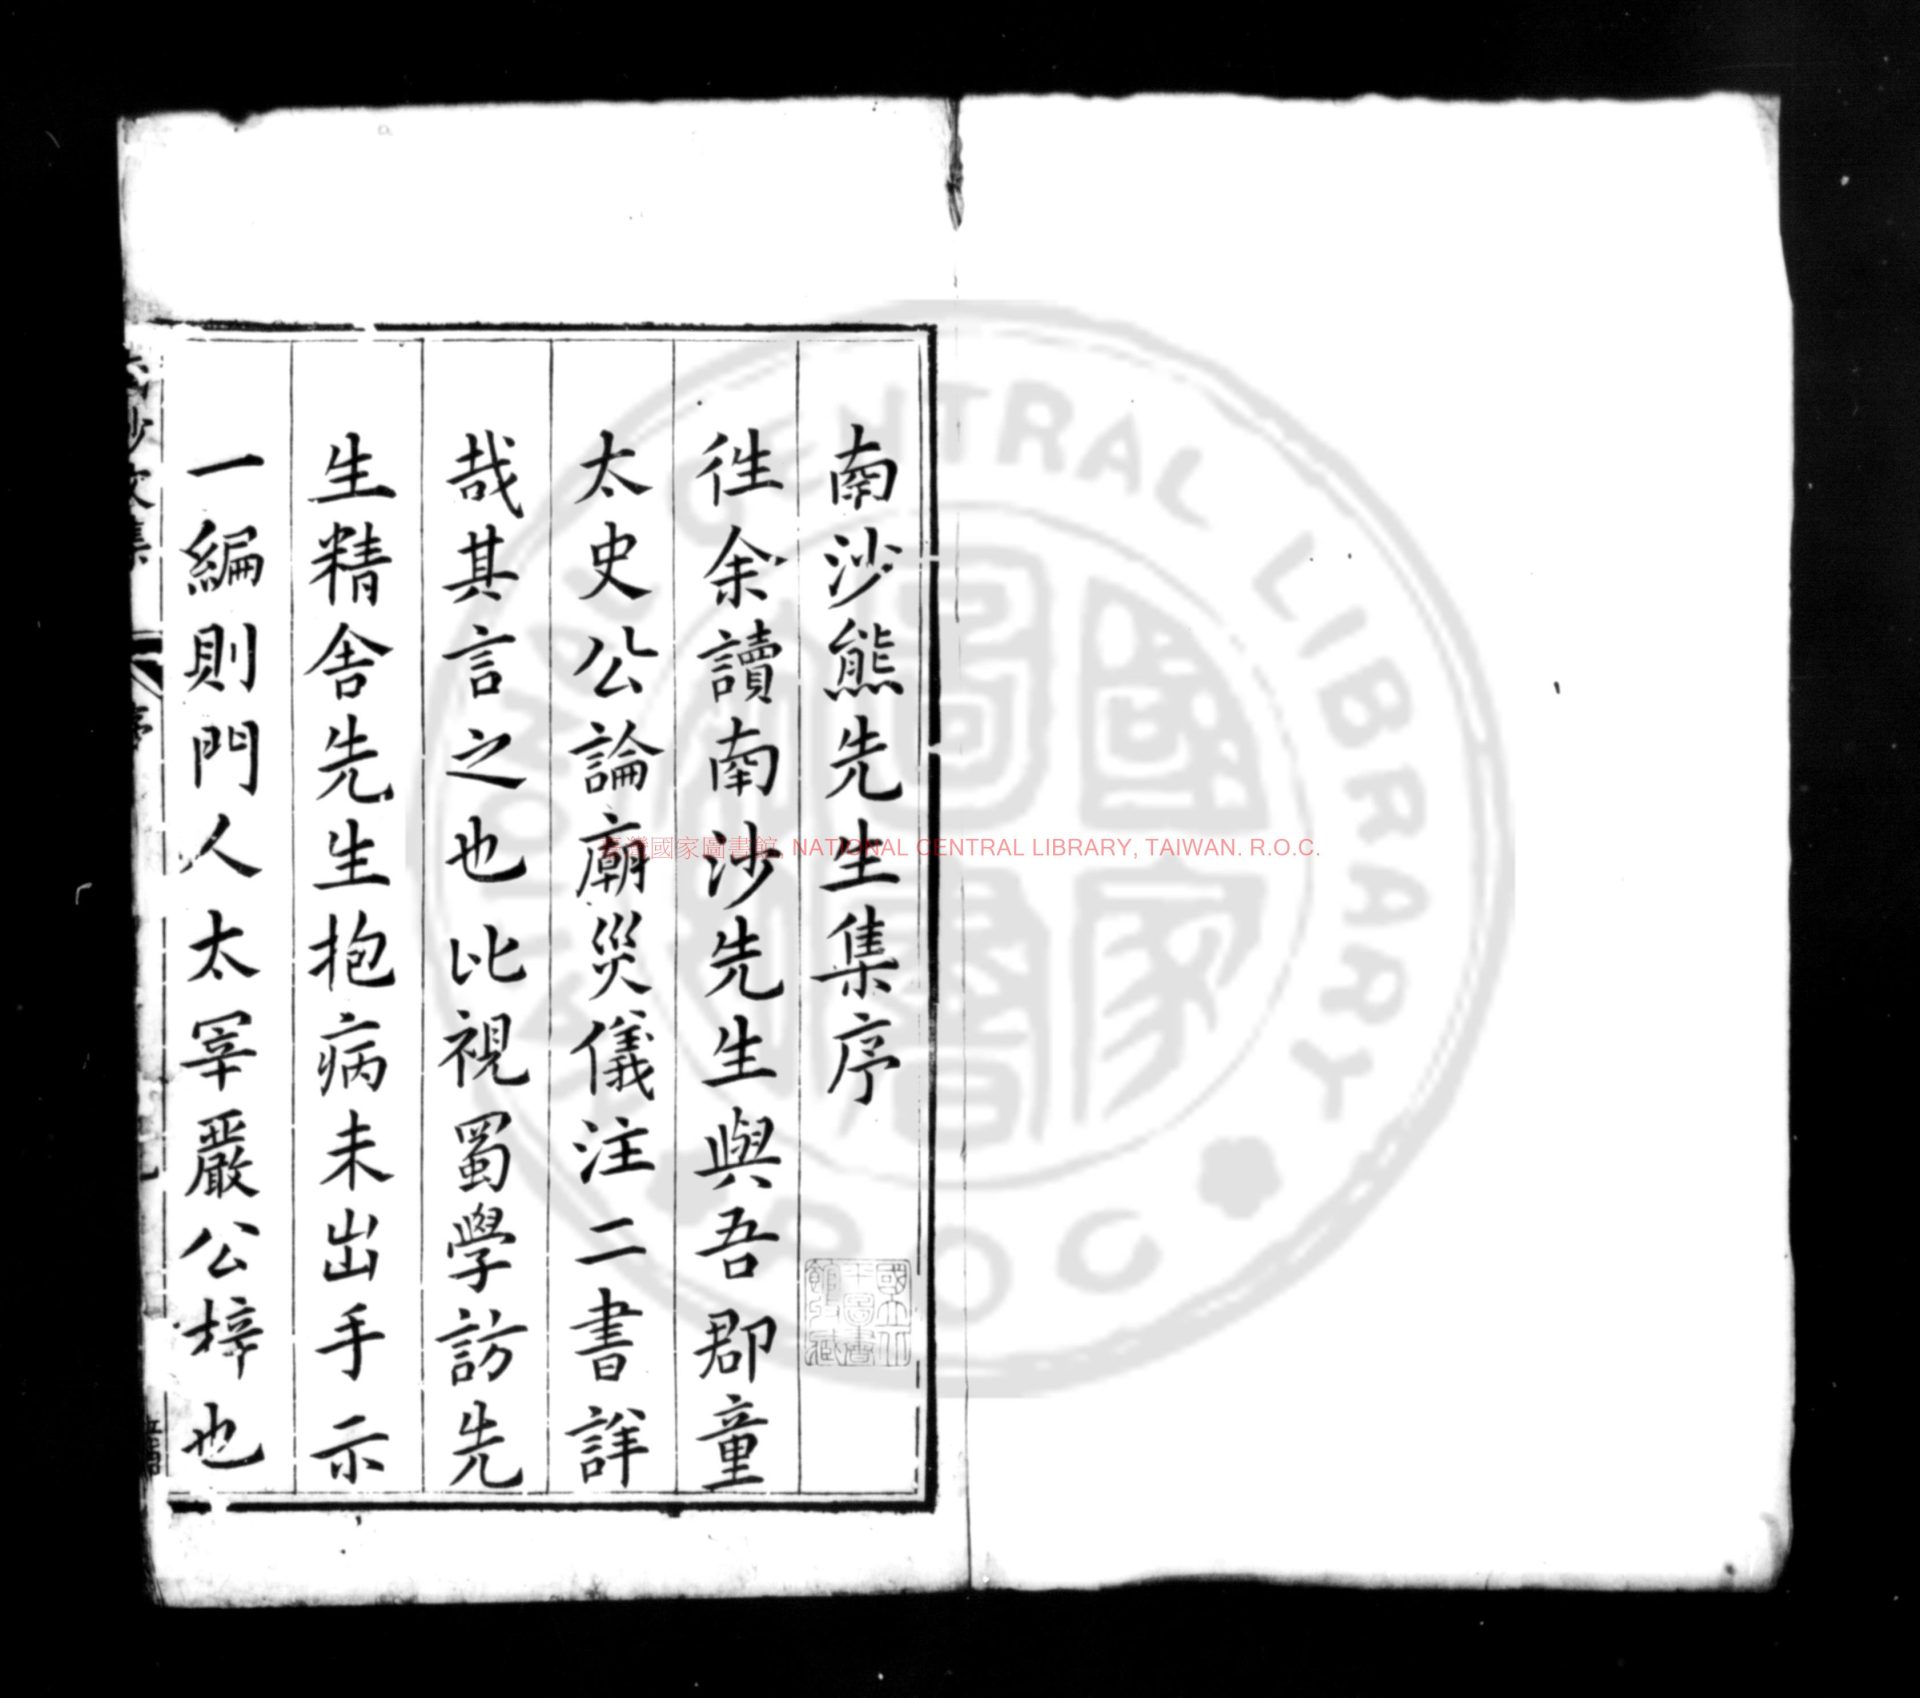 南沙熊先生集序
徃余讀南沙先生與吾郡童
太史公論廟災儀注二書詳
哉其言之也比視蜀學訪先
生精舍先生抱病未出手示
一編則門人太宰嚴公梓也
沙文集
序
國立中央圖書館收藏
臺灣國家圖書館, NATIONAL CENTRAL LIBRARY, TAIWAN. R.O.C.
NATIONAL CENTRAL LIBRARY
R.O.C.
國家圖書